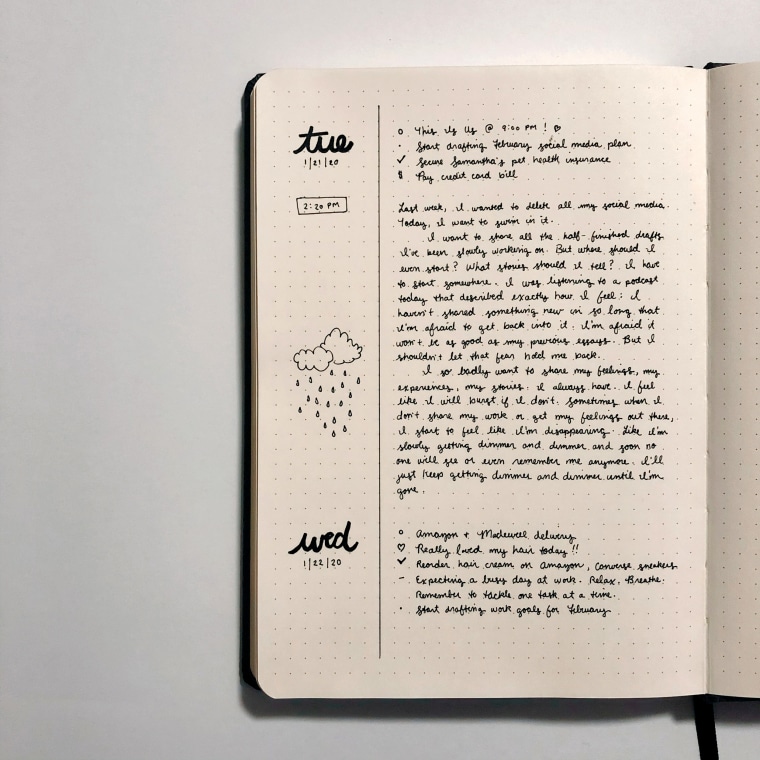 tue
1/21/20
○ This Is Us @ 9:00 PM ! ♡
· Start drafting February social media plan
✓ Secure Samantha's pet health insurance
$ Pay credit card bill
2:20 PM
Last week, I wanted to delete all my social media.
Today, I want to swim in it.
I want to share all the half-finished drafts
I've been slowly working on. But where should I
even start? What stories should I tell? I have
to start somewhere. I was listening to a podcast
today that described exactly how I feel: I
haven't shared something new in so long that
I'm afraid to get back into it. I'm afraid it
won't be as good as my previous essays. But I
shouldn't let that fear hold me back.
I so badly want to share my feelings, my
experiences, my stories. I always have. I feel
like I will burst if I don't. Sometimes when I
don't share my work or get my feelings out there,
I start to feel like I'm disappearing. Like I'm
slowly getting dimmer and dimmer and soon no
one will see or even remember me anymore. I'll
just keep getting dimmer and dimmer until I'm
gone.
wed
1/22/20
○ Amazon + Madewell delivery
♡ Really loved my hair today!!
✓ Reorder hair cream on Amazon, Converse sneakers
- Expecting a busy day at work. Relax, Breathe.
Remember to tackle one task at a time.
· Start drafting work goals for February